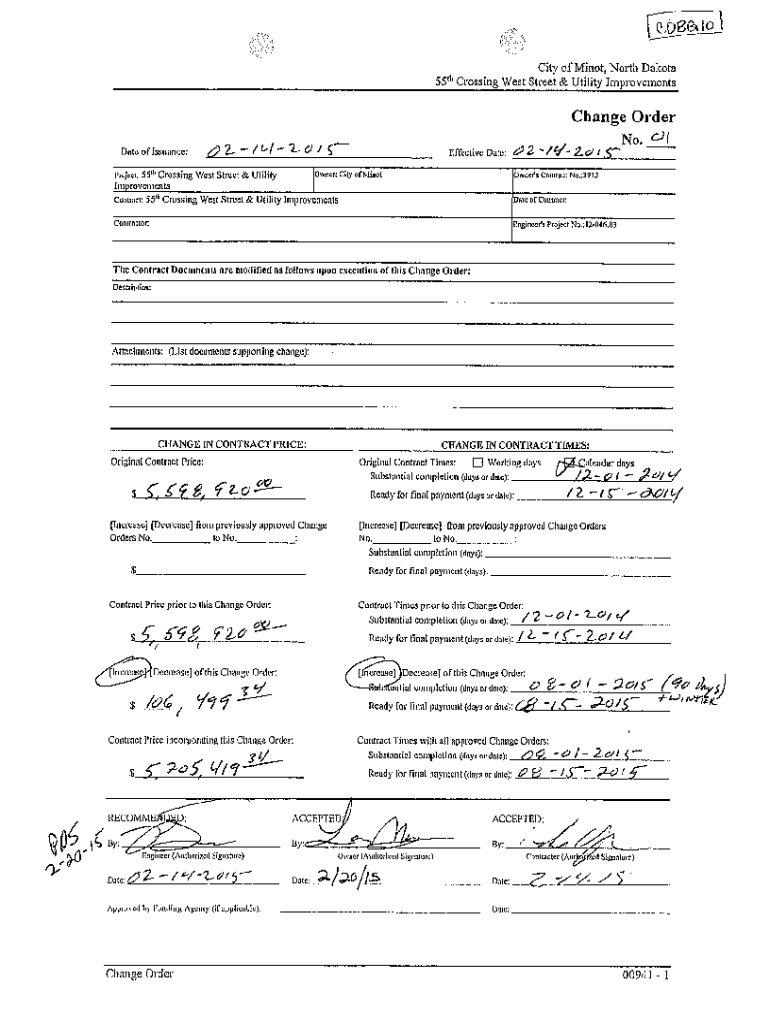 CDBG10
City of Minot, North Dakota
55th Crossing West Street & Utility Improvements
Change Order
No. 01
Date of Issuance: 02-14-2015 Effective Date: 02-14-2015
Project: 55th Crossing West Street & Utility Improvements Owner: City of Minot Owner's Contract No.:3913
Contract: 55th Crossing West Street & Utility Improvements Date of Contract:
Contractor: Engineer's Project No.:12-046.03
The Contract Documents are modified as follows upon execution of this Change Order:
Description:
Attachments: (List documents supporting change):
CHANGE IN CONTRACT PRICE: CHANGE IN CONTRACT TIMES:
Original Contract Price: Original Contract Times: Working days Calendar days
Substantial completion (days or date): 12-01-2014
$ 5,598,920 00 Ready for final payment (days or date): 12-15-2014
[Increase] [Decrease] from previously approved Change [Increase] [Decrease] from previously approved Change Orders
Orders No. to No. : No. to No. :
Substantial completion (days):
$ Ready for final payment (days):
Contract Price prior to this Change Order: Contract Times prior to this Change Order:
Substantial completion (days or date): 12-01-2014
$ 5,598,920 00 Ready for final payment (days or date): 12-15-2014
[Increase] [Decrease] of this Change Order: [Increase] [Decrease] of this Change Order:
Substantial completion (days or date): 08-01-2015 (90 Days
$ 106,499 34 Ready for final payment (days or date): 08-15-2015 + WINTER
Contract Price incorporating this Change Order: Contract Times with all approved Change Orders:
Substantial completion (days or date): 08-01-2015
$ 5,705,419 34 Ready for final payment (days or date): 08-15-2015
RECOMMENDED: ACCEPTED: ACCEPTED:
2-20-15
By: By: By:
Engineer (Authorized Signature) Owner (Authorized Signature) Contractor (Authorized Signature)
Date: 02-14-2015 Date: 2/20/15 Date: 2-14-15
Approved by Funding Agency (if applicable): Date:
Change Order 00941 - 1